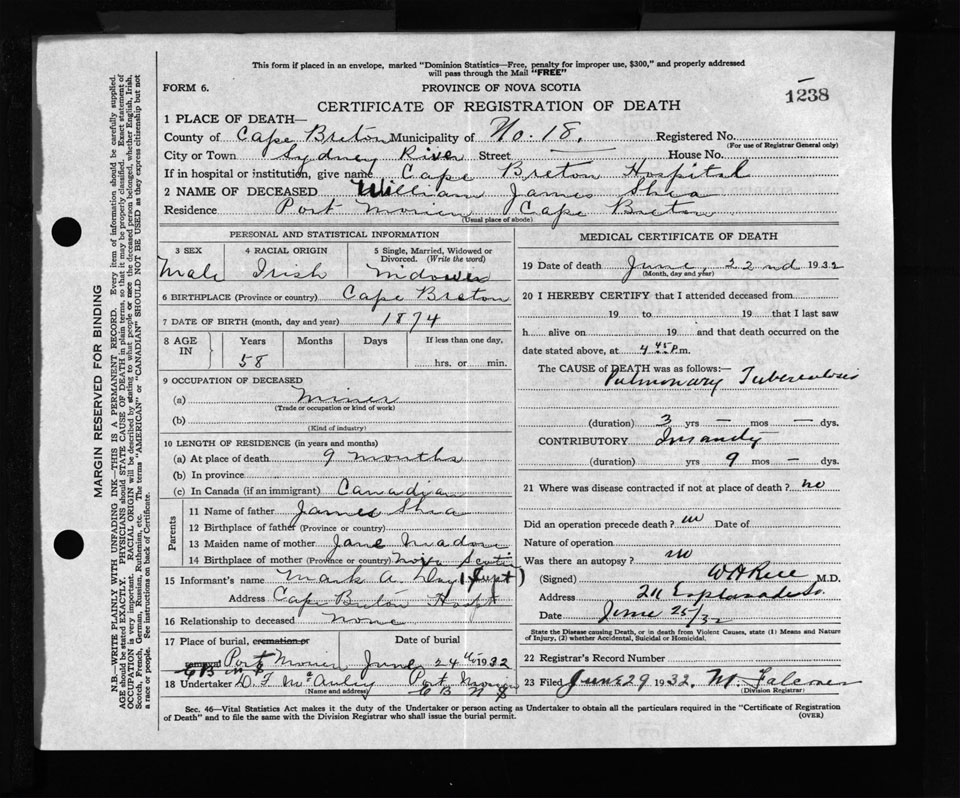 This form if placed in an envelope, marked "Dominion Statistics—Free, penalty for improper use, $300," and properly addressed
will pass through the Mail "FREE"
FORM 6.
PROVINCE OF NOVA SCOTIA
1238
CERTIFICATE OF REGISTRATION OF DEATH
1 PLACE OF DEATH—
County of Cape Breton Municipality of No. 18. Registered No.
(For use of Registrar General only)
City or Town Sydney River Street — House No.
If in hospital or institution, give name Cape Breton Hospital
2 NAME OF DECEASED William James Shea
Residence Port Morien Cape Breton
(Usual place of abode)
PERSONAL AND STATISTICAL INFORMATION
3 SEX 4 RACIAL ORIGIN 5 Single, Married, Widowed or Divorced. (Write the word)
Male Irish Widower
6 BIRTHPLACE (Province or country) Cape Breton
7 DATE OF BIRTH (month, day and year) 1874
8 AGE IN Years Months Days If less than one day,
58 hrs. or min.
9 OCCUPATION OF DECEASED
(a) Miner
(Trade or occupation or kind of work)
(b)
(Kind of industry)
10 LENGTH OF RESIDENCE (in years and months)
(a) At place of death 9 months
(b) In province
(c) In Canada (if an immigrant) Canadian
Parents
11 Name of father James Shea
12 Birthplace of father (Province or country)
13 Maiden name of mother Jane
14 Birthplace of mother (Province or country) Nova Scotia
15 Informant's name Mark A. Day (Supt)
Address Cape Breton Hospt
16 Relationship to deceased None
17 Place of burial, cremation or removal Date of burial
Port Morien June 24th 1932
C B N S
18 Undertaker D. J. McAuley Port Morien
(Name and address) C B N S
MEDICAL CERTIFICATE OF DEATH
19 Date of death June 22nd 1932
(Month, day and year)
20 I HEREBY CERTIFY that I attended deceased from
19 to 19 that I last saw
h alive on 19 and that death occurred on the
date stated above, at 4 45 P.m.
The CAUSE of DEATH was as follows:
Pulmonary Tuberculosis
(duration) 3 yrs — mos — dys.
CONTRIBUTORY Insanity
(duration) yrs 9 mos — dys.
21 Where was disease contracted if not at place of death? no
Did an operation precede death? no Date of
Nature of operation
Was there an autopsy? no
(Signed) W H Rice M.D.
Address 211 Esplanade
Date June 25/32
State the Disease causing Death, or in death from Violent Causes, state (1) Means and Nature
of Injury, (2) whether Accidental, Suicidal or Homicidal.
22 Registrar's Record Number
23 Filed June 29 1932. M. Falconer
(Division Registrar)
Sec. 46—Vital Statistics Act makes it the duty of the Undertaker or person acting as Undertaker to obtain all the particulars required in the "Certificate of Registration
of Death" and to file the same with the Division Registrar who shall issue the burial permit.
(OVER)
MARGIN RESERVED FOR BINDING
N.B.—WRITE PLAINLY WITH UNFADING INK—THIS IS A PERMANENT RECORD. Every item of information should be carefully supplied.
AGE should be stated EXACTLY. PHYSICIANS should STATE CAUSE OF DEATH in plain terms, so that it may be properly classified. Exact statement of
OCCUPATION is very important. RACIAL ORIGIN will be described by stating to what people or race the deceased person belonged, whether English, Irish,
Scotch, French, German, Russian, Ruthenian, etc. The terms "AMERICAN" or "CANADIAN" SHOULD NOT BE USED as they express citizenship but not
a race or people. See instructions on back of Certificate.